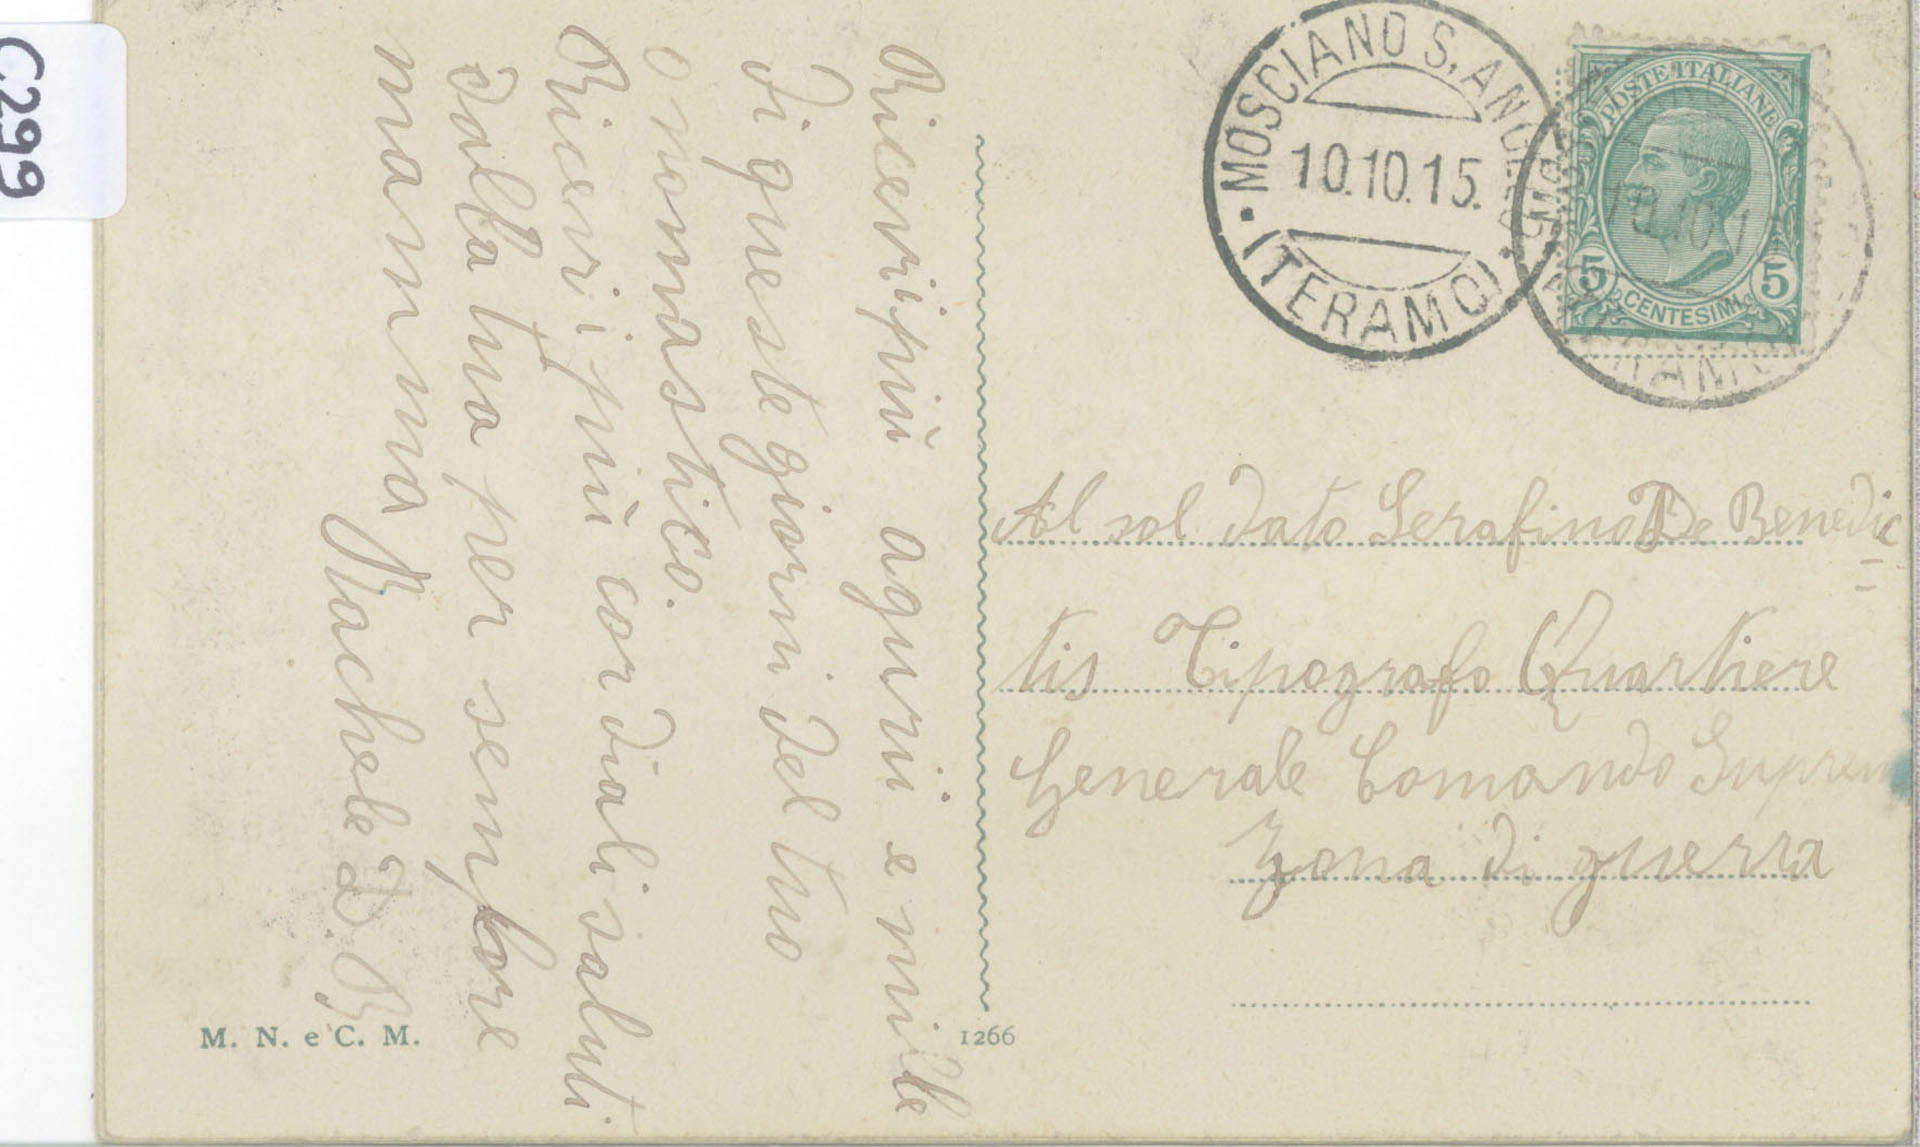 C299
MOSCIANO S. ANGELO
10.10.15.
(TERAMO)
POSTE ITALIANE
5 CENTESIMI 5
10.10.1
Ricevi più aguri e mille
di queste giorni del tuo
onomastico.
Ricevi i più cordiali saluti
dalla tua per sempre
mamma
Rachele D. B
Al sol dato Serafino De Benedic
=
tis Tipografo Quartiere
Generale Comando Suprem
Zona di guerra
M. N. e C. M.
1266